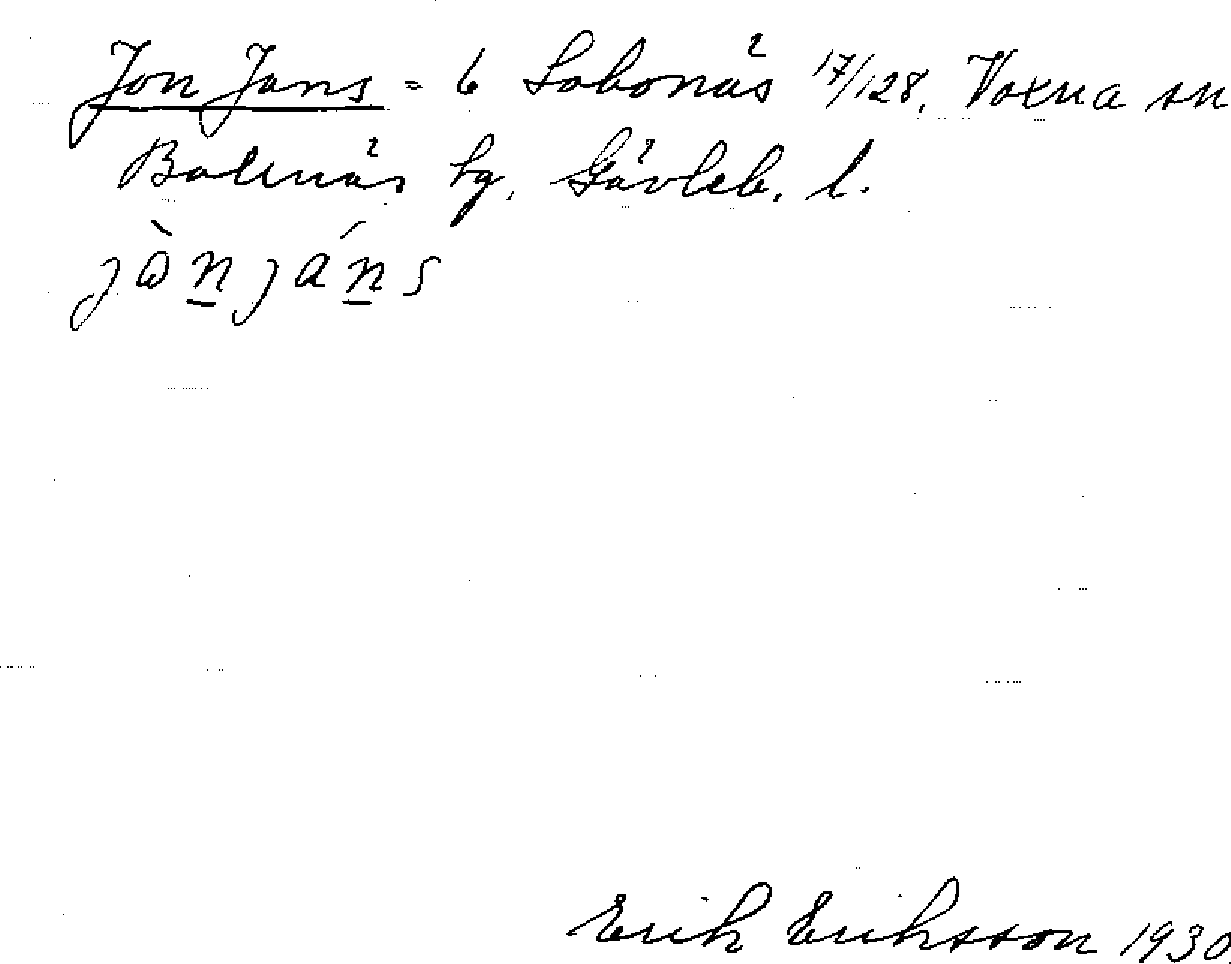 Jon Jans = 6 Lobonäs 17/128, Voxna sn
Bollnäs tg, Gävleb. l.
jònjáns
Erik Eriksson 1930